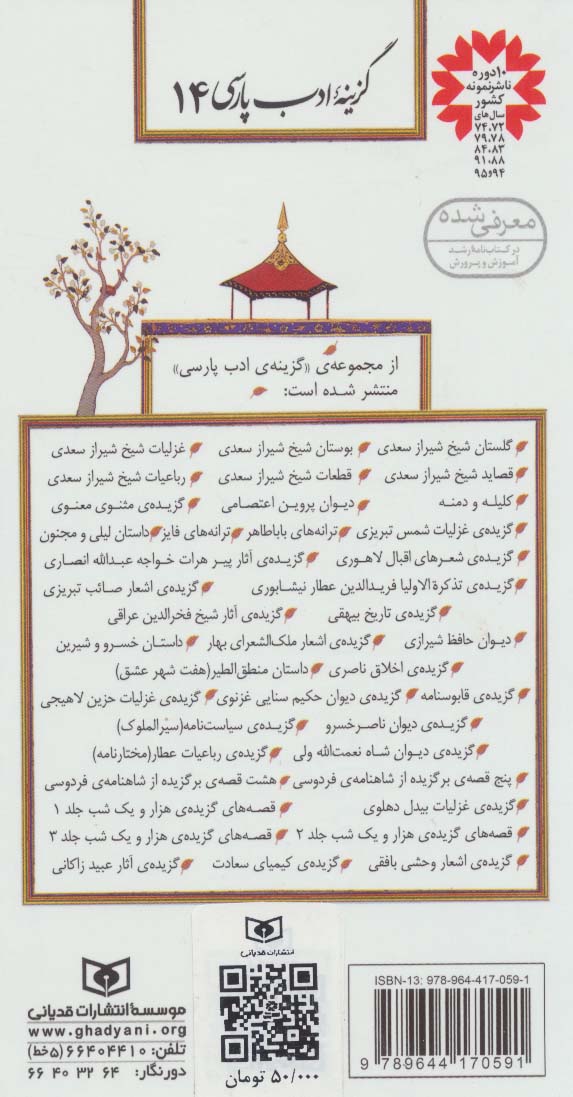 گزینهٔ ادب پارسی ۱۴
۱۰ دوره
ناشر نمونه
کشور
سال‌های
۷۴،۷۲
۷۹،۷۸
۸۴،۸۳
۹۱،۸۸
۹۴ و ۹۵
معرفی شده
در کتاب‌نامهٔ رشد
آموزش و پرورش
از مجموعه‌ی «گزینه‌ی ادب پارسی»
منتشر شده است:
گلستان شیخ شیراز سعدی بوستان شیخ شیراز سعدی غزلیات شیخ شیراز سعدی
قصاید شیخ شیراز سعدی قطعات شیخ شیراز سعدی رباعیات شیخ شیراز سعدی
کلیله و دمنه دیوان پروین اعتصامی گزیده‌ی مثنوی معنوی
گزیده‌ی غزلیات شمس تبریزی ترانه‌های باباطاهر ترانه‌های فایز داستان لیلی و مجنون
گزیده‌ی شعرهای اقبال لاهوری گزیده‌ی آثار پیر هرات خواجه عبدالله انصاری
گزیده‌ی تذکرة الاولیا فریدالدین عطار نیشابوری گزیده‌ی اشعار صائب تبریزی
گزیده‌ی تاریخ بیهقی گزیده‌ی آثار شیخ فخرالدین عراقی
دیوان حافظ شیرازی گزیده‌ی اشعار ملک‌الشعرای بهار داستان خسرو و شیرین
گزیده‌ی اخلاق ناصری داستان منطق‌الطیر(هفت شهر عشق)
گزیده‌ی قابوسنامه گزیده‌ی دیوان حکیم سنایی غزنوی گزیده‌ی غزلیات حزین لاهیجی
گزیده‌ی دیوان ناصرخسرو گزیده‌ی سیاست‌نامه(سیَرالملوک)
گزیده‌ی دیوان شاه نعمت‌الله ولی گزیده‌ی رباعیات عطار(مختارنامه)
پنج قصه‌ی برگزیده از شاهنامه‌ی فردوسی هشت قصه‌ی برگزیده از شاهنامه‌ی فردوسی
گزیده‌ی غزلیات بیدل دهلوی قصه‌های گزیده‌ی هزار و یک شب جلد ۱
قصه‌های گزیده‌ی هزار و یک شب جلد ۲ قصه‌های گزیده‌ی هزار و یک شب جلد ۳
گزیده‌ی اشعار وحشی بافقی گزیده‌ی کیمیای سعادت گزیده‌ی آثار عبید زاکانی
ISBN-13: 978-964-417-059-1
9 789644 170591
انتشارات قدیانی
۵۰/۰۰۰ تومان
موسسهٔ انتشارات قدیانی
www.ghadyani.org
تلفن: ۶۶۴۰۴۴۱۰ (۵ خط)
دورنگار: ۶۶ ۴۰ ۳۲ ۶۴